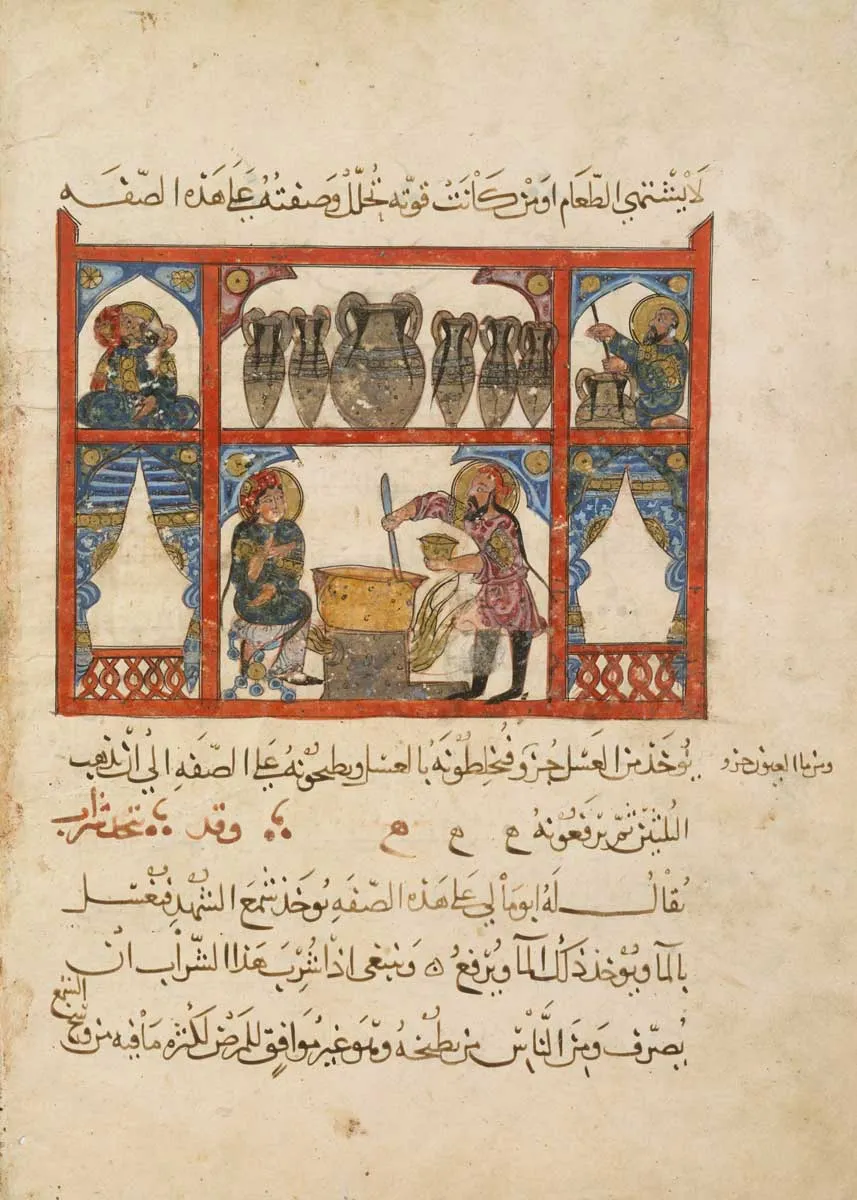 لا يشتهي الطعام او من كانت قوته تحلل وصفته على هذه الصفه
يوخذ من العسل جزو فيخلطونه بالعسل ويطبخونه على الصفه الي ان يذهب
ومن ما العيون جزو
الثلثين ثم يرفعونه ح ح ح وقد يتخذ شراب
يقال له ابومالي على هذه الصفه يوخذ شمع الشهد فيغسل
بالما ويوخذ ذلك الما ويرفع ٥ وينبغي اذا شرب هذا الشراب ان
يصرف ومن الناس من يطبخه وهو غير موافق للمرض لكثره ما فيه من وسخ
الشمع